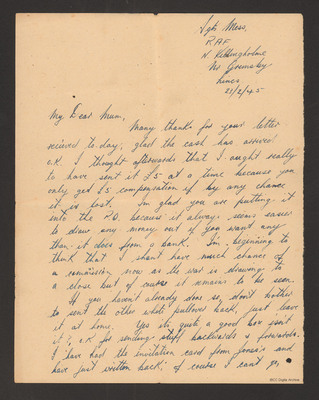 Sgts Mess,
R.A.F.
N. Killingholme
Nr Grimsby
Lincs
21/2/45
My Dear Mum,
Many thanks for your letter
recieved to-day; glad the cash has arrived
o.k. I thought afterwards that I ought really
to have sent it £5 at a time because you
only get £5 compensation if by any chance
it is lost. I'm glad you are putting it
into the P.O. because it always seems easier
to draw any money out if you want any
than it does from a bank. I'm beginning to
think that I shan't have much chance of
a commission now as the war is drawing to
a close but of course it remains to be seen.
If you haven't already done so, don't bother
to send the other white pullover back, just leave
it at home. Yes it's quite a good box isn't
it?, o.k. for sending stuff backwards & forwards.
I have had the invitation card from and
have just written back; of course I can't go,
IBCC Digital Archive